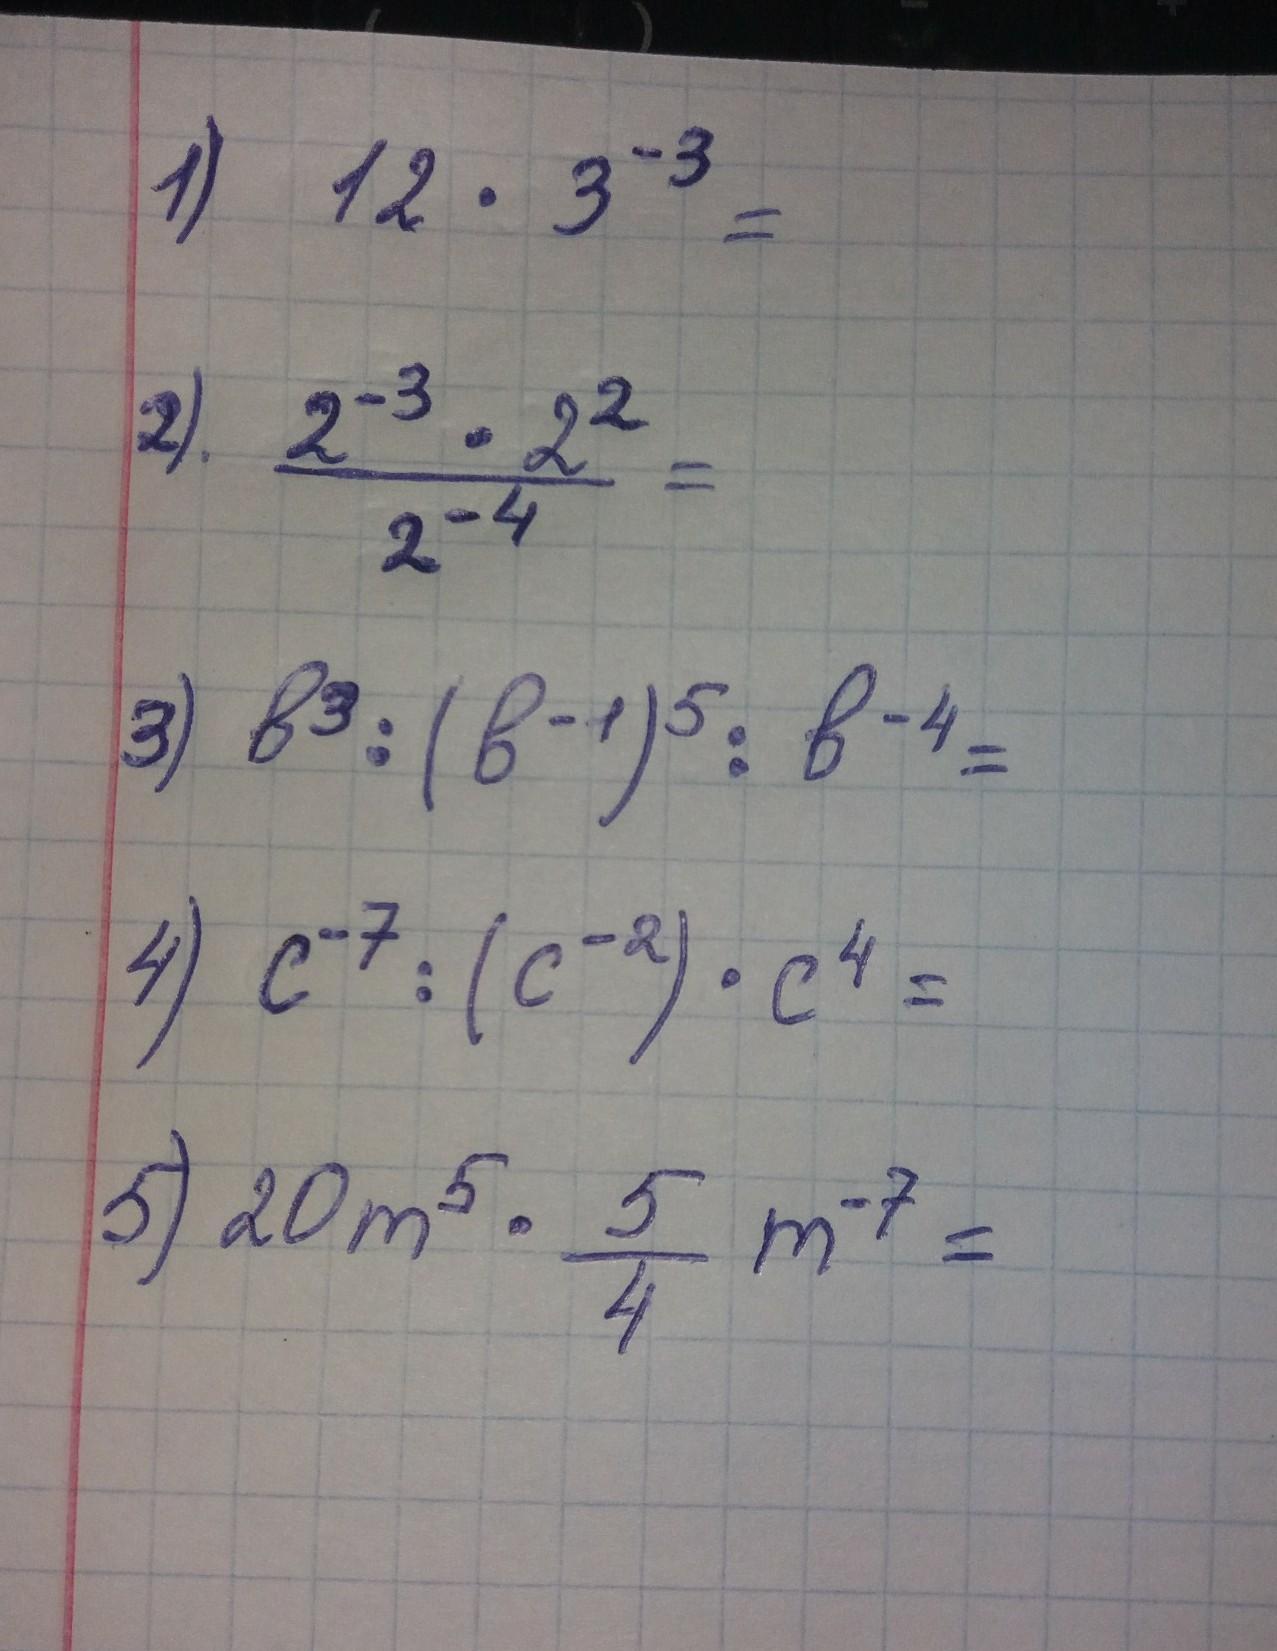 1) 12 · 3⁻³ =
2). (2⁻³ · 2²) / 2⁻⁴ =
3) b³ : (b⁻¹)⁵ : b⁻⁴ =
4) c⁻⁷ : (c⁻²) · c⁴ =
5) 20m⁵ · 5/4 m⁻⁷ =